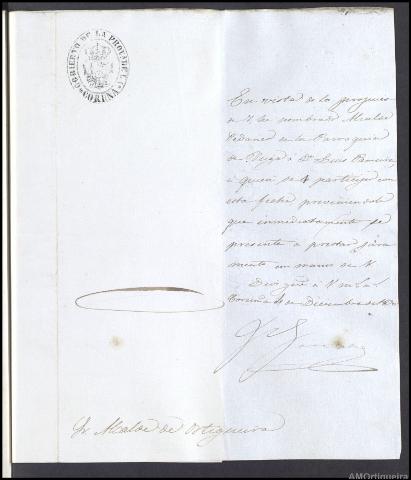 GOBIERNO DE LA PROVINCIA
CORUÑA
En vista de lo propues-
to he nombrado Alcalde
Pedaneo de la Parroquia
de á Dn. Luis
á quien se lo participo con
esta fecha previniendole
que inmediatamente se
presente a prestar jura
mento en manos de V.
Dios gue. á V. m. a.
Coruña de Diciembre de
Sr. Alcalde de Ortigueira
AMOrtigueira